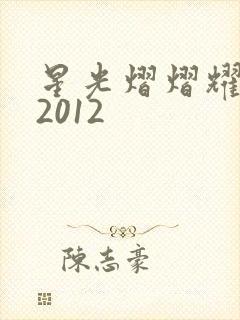 星光熠熠耀
2012
陈志豪